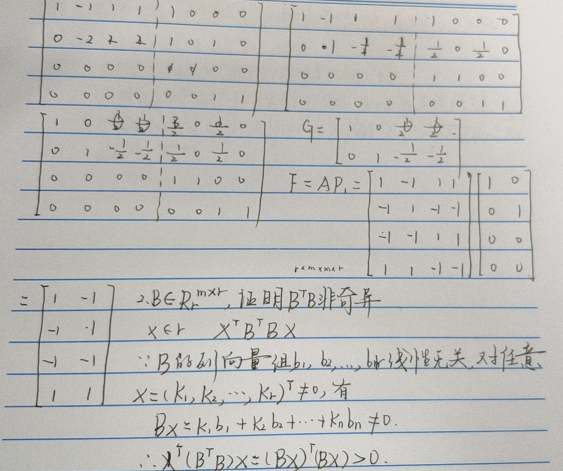 1 -1 1 1 1 0 0 0
0 -2 2 2 1 0 1 0
0 0 0 0 1 1 0 0
0 0 0 0 0 0 1 1
1 -1 1 1 1 0 0 0
0 1 0 1/2 0
0 0 0 0 1 1 0 0
0 0 0 0 0 0 1 1
1 0 0 0
0 1 -1/2 -1/2 1/2 0 1/2 0
0 0 0 0 1 1 0 0
0 0 0 0 0 0 1 1
G = [ 1 0
0 1 -1/2 -1/2 ]
F = AP₁ = [ 1 -1 1 1 ] [ 1 0 ]
-1 1 -1 -1 0 1
-1 -1 1 1 0 0
1 1 -1 -1 0 0
r×m×m×r
= [ 1 -1
-1 1
-1 -1
1 1 ]
2.B∈Rᵣᵐˣʳ,证明BᵀB非奇异
x∈r XᵀBᵀBX
∵B的列向量组b₁,b₂,…,线性无关,对任意
X=(K₁,K₂,…,Kᵣ)ᵀ≠0,有
BX=K₁b₁+K₂b₂+…+Kₙbₙ≠0.
∴Xᵀ(BᵀB)X=(BX)ᵀ(BX)>0.